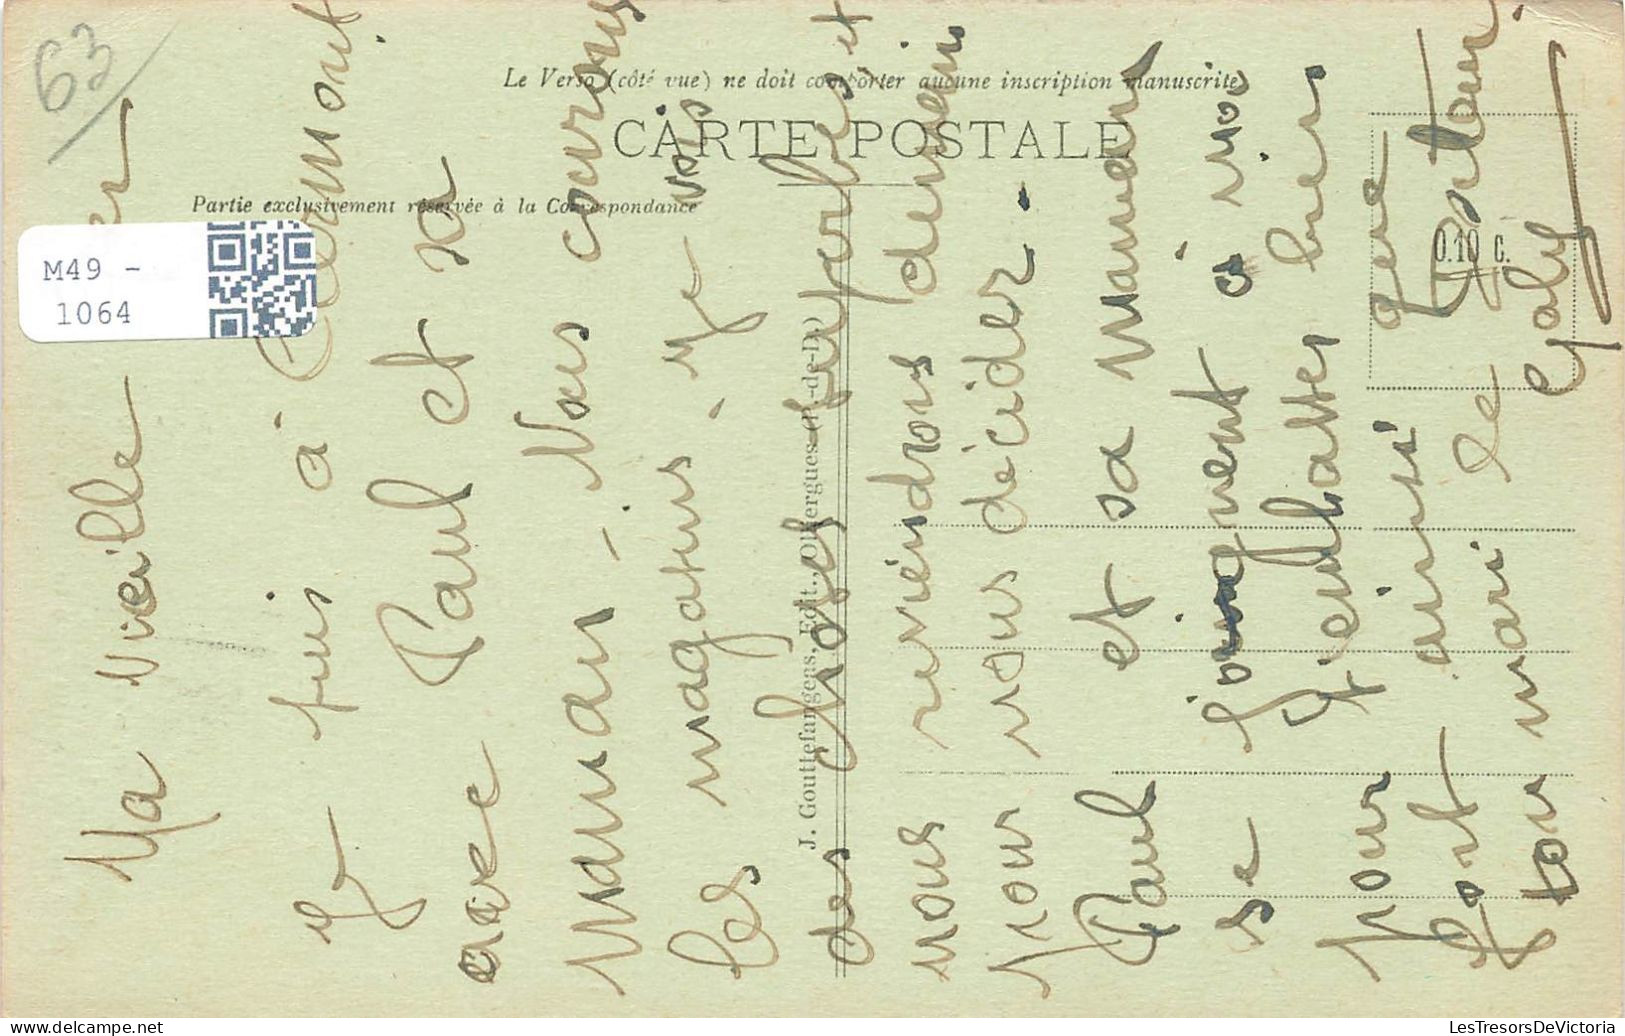 63
Le Verso (côté vue) ne doit comporter aucune inscription manuscrite
CARTE POSTALE
Partie exclusivement réservée à la Correspondance
M49 -
1064
J. Gouttefangeas, Edit., Olliergues (P.-de-D.)
0.10 c.
Ma Vieille
Je suis à Clermont
avec Paul et sa
maman - Nous courons
les magasins, je vois
des choses superbes et
nous reviendrons demain
pour nous décider.
Paul et sa maman
se joignent à moi
pour t'embrasser bien
fort ainsi que
ton mari le Docteur.
Gaby